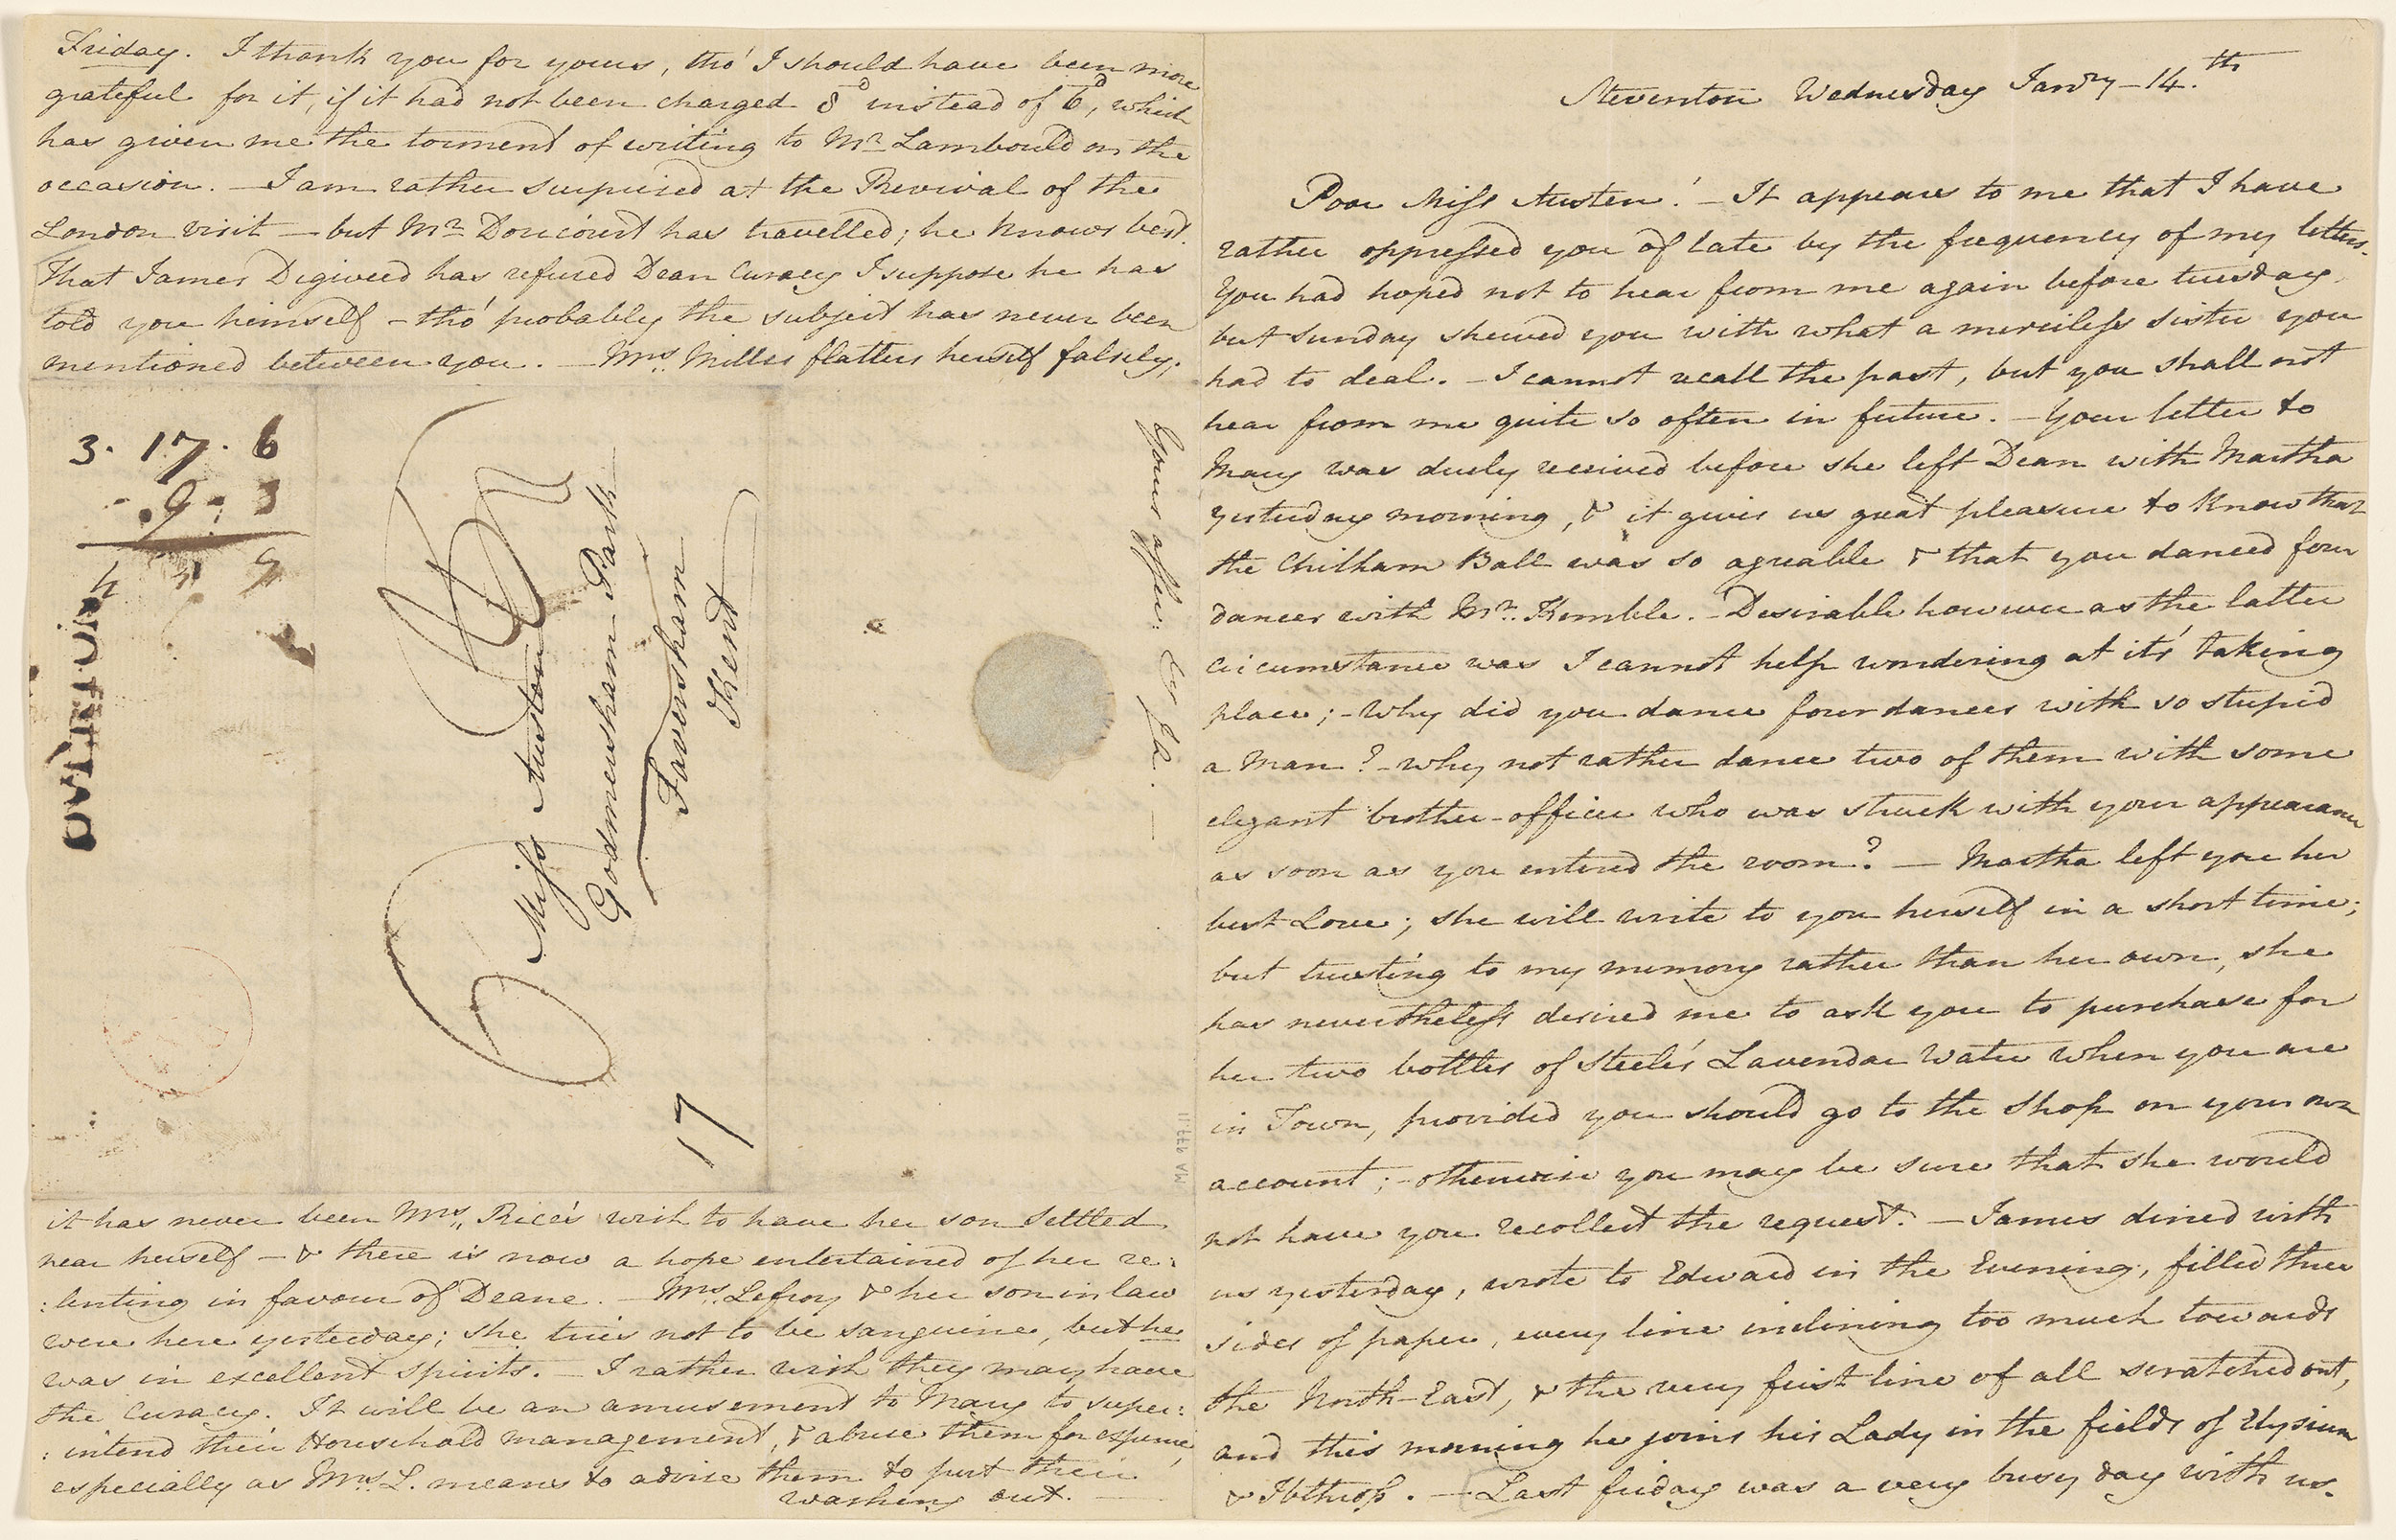 Steventon Wednesday Janry-14.th
Poor Miss Austen! - It appears to me that I have
rather oppressed you of late by the frequency of my letters.
You had hoped not to hear from me again before tuesday,
but Sunday shewed you with what a merciless sister you
had to deal. - I cannot recall the past, but you shall not
hear from me quite so often in future. - Your letter to
Mary was duely received before she left Dean with Martha
yesterday morning, & it gives us great pleasure to know that
the Chilham Ball was so agreable & that you danced four
dances with Mr. Kemble. - Desirable however as the latter
circumstance was I cannot help wondering at it's taking
place; - Why did you dance four dances with so stupid
a Man? - why not rather dance two of them with some
elegant brother-officer who was struck with your appearance
as soon as you entered the room? — Martha left you her
best Love; she will write to you herself in a short time;
but trusting to my memory rather than her own, she
has nevertheless desired me to ask you to purchase for
her two bottles of Steele's Lavender Water when you are
in Town, provided you should go to the Shop on your own
account; - otherwise you may be sure that she would
not have you recollect the request. — James dined with
us yesterday, wrote to Edward in the Evening, filled three
sides of paper, every line inclining too much towards
the North-East, & the very first line of all scratched out,
and this morning he joins his Lady in the fields of Elysium
& Ibthrop. — Last friday was a very busy day with us.
Friday. I thank you for yours, tho' I should have been more
grateful for it, if it had not been charged 8d instead of 6d, which
has given me the torment of writing to Mr Lambould on the
occasion. — I am rather surprised at the Revival of the
London visit — but Mr Doricourt has travelled; he knows best.
That James Digweed has refused Dean Curacy I suppose he has
told you himself - tho' probably the subject has never been
mentioned between you. — Mrs. Milles flatters herself falsely;
it has never been Mrs. Rice's wish to have her son settled
near herself — & there is now a hope entertained of her re:
:lenting in favour of Deane. — Mrs. Lefroy & her son in law
were here yesterday; she tries not to be sanguine, but he
was in excellent spirits. — I rather wish they may have
the Curacy. It will be an amusement to Mary to super:
:intend their Household management, & abuse them for expense,
especially as Mrs. L. means to advise them to put their
washing out. —
Yours affec: ly JA. —
Miss Austen
Godmersham Park
Faversham
Kent
3. 17. 6
. 9. 3
OVERTON
17
MA 977.11